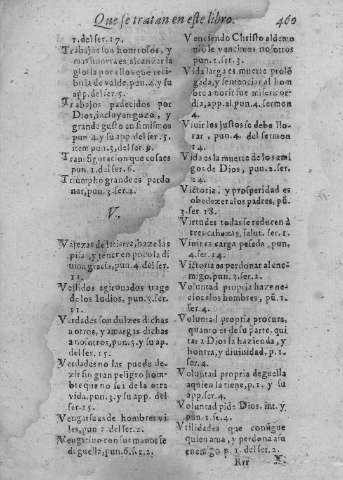 Que se tratan en este libro. 469
1. del ser. 17.
Trabajos son honrosos, y
mas honra es alcançar la
gloria por ellos que rece-
birla de valde, pun. 4. y su
app. del ser. 5.
Trabajos padecidos por
Dios, incluyan gozo, y
grande gusto en si mismos
pun. 4. y su app. del ser. 5.
item pun. 3. del ser. 9.
Transfiguracion que cosa es
pun. 1. del ser. 6.
Triumpho grande es perdo
nar, pun. 3. ser. 2.
V.
de la tierra, haze las
pisa, y tener en poco la di
uina gracia, pun. 4. del ser.
Vestidos agironados trage
de los Iudios, pun. 3. ser.
Verdades son dulzes dichas
a otros, y amargas dichas
a nosotros, pun. 3. y su ap.
del ser. 15.
Verdades no las puede de-
zir sin gran peligro hom-
bre que no sea de la otra
vida. pun. 3. y su app. del
ser. 15.
Vengarse es de hombres vi
les, pun 2. del ser. 2.
Vengatiuo con su mano se
deguella, pun. 6. s. 2.
Venciendo Christo al demo
nio le vencimos nosotros
pun. 1. ser. 3.
Vida larga es muerte prolõ
gada, y sentenciar al hom
bre a morir fue misericor-
dia, app. al pun. 4. sermon
4.
Viuir los justos se debe llo-
rar, pun. 4. del sermon
14.
Vida es la muerte de los ami
gos de Dios, pun. 2. ser.
14.
Victoria, y prosperidad es
obedezer a los padres, pũ.
3. ser. 18.
Virtudes todas se reducen à
tres cabezas, salut. ser. 1.
Viuir es carga pesada, pun.
4. ser. 14.
Victoria es perdonar al ene-
migo, pun. 3. ser. 2.
Voluntad propria haze ne-
cios a los hombres, pũ. 1.
ser. 4.
Voluntad propria procura,
quanto es de su parte, qui
tar a Dios la hazienda, y
honrra, y diuinidad, p. 1.
ser. 4.
Voluntad propria deguella
a quien la tiene, p. 1. y su
app. ser. 4.
Voluntad pide Dios, int. y
pun. 1. se. 4.
Vtilidades que consigue
quien ama, y perdona a su
enemigo p. 1. del ser. 2.
Rrr X.